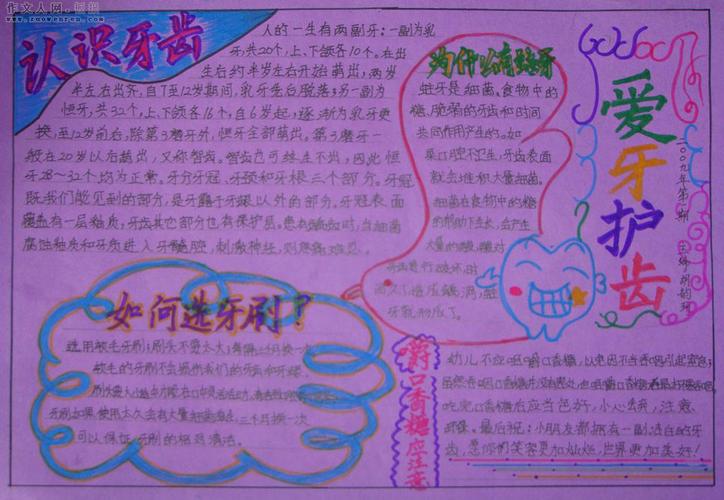 作文人网
认识牙齿
人的一生有两副牙:一副为乳
牙,共20个,上、下颌各10个。在出
生后约半岁左右开始萌出,两岁
半左右出齐,自7至12岁期间,乳牙先后脱落;另一副为
恒牙,共32个,上、下颌各16个,自6岁起,逐渐为乳牙更
换,至12岁前后,除第3磨牙外,恒牙全部萌出。第3磨牙一
般在20岁以后萌出,又称智齿。智齿也可终生不出,因此恒
牙28~32个均为正常。牙分牙冠、牙颈和牙根三个部分。牙冠
既我们能见到的部分,是牙露于牙龈以外的部分。牙冠表面
覆盖有一层釉质,牙齿其它部分也有保护层。患有龋齿时,当细菌
腐蚀釉质和牙质进入牙髓腔,刺激神经,则疼痛难忍。
为什么有蛀牙
蛀牙是细菌、食物中的
糖、脆弱的牙齿和时间
共同作用产生的。如
果口腔不卫生,牙齿表面
就会堆积大量细菌。
细菌在食物中的糖
的帮助下生长,会产生
大量的酸,酸对
牙齿进行破坏,时
间久了造成龋洞,蛀
牙就形成了。
爱牙护齿
二〇〇九年第 期
如何选牙刷?
选用软毛牙刷;刷头不要太大;每隔三个月换一次
软毛的牙刷不会损伤我们的牙齿和牙龈。
牙刷如果使用太久会有大量细菌 三个月换一次
可以保证牙刷的相对清洁。
嚼口香糖应注意
幼儿不应咀嚼口香糖,以免因不吞
吃完口香糖后应当包好,小心丢弃,注意
环保。最后祝:小朋友都拥有一副洁白的牙
齿,愿你们笑容更加灿烂,世界更加美好!